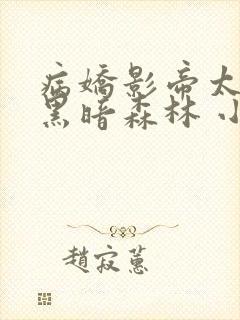 病嬌影帝太
黑暗森林 小
趙寂蕙